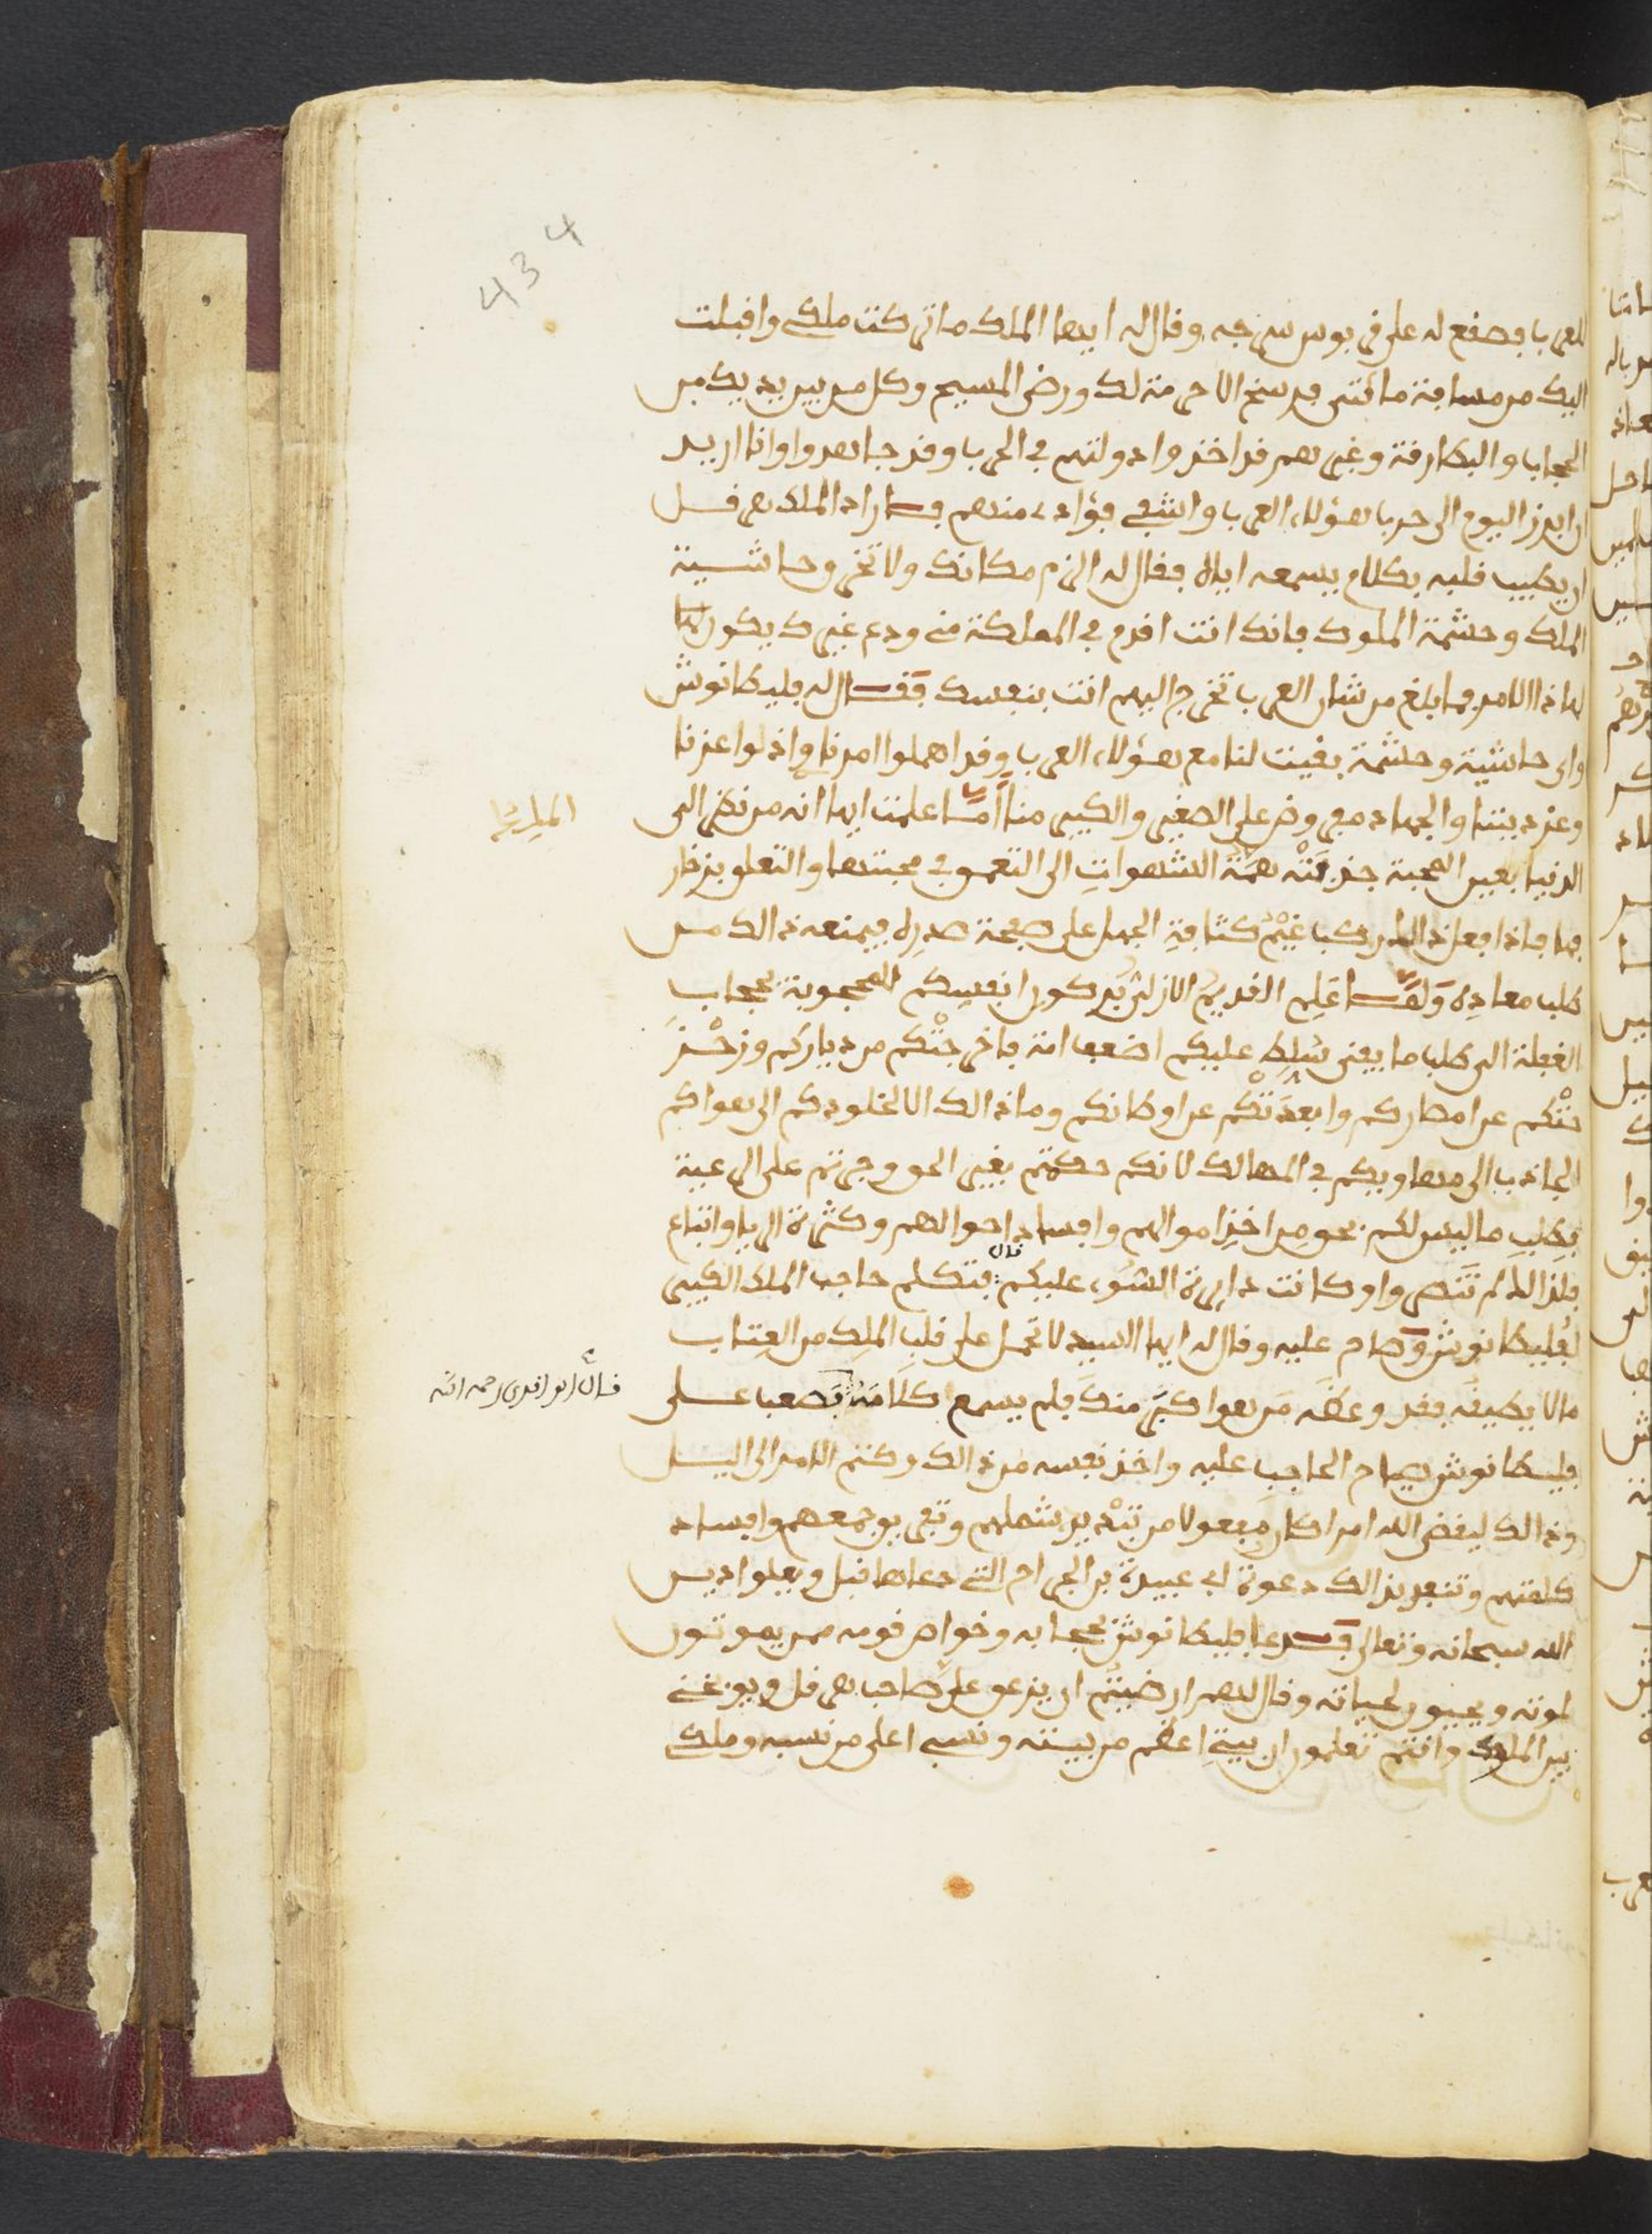 434
للعرب فصقع له على قربوس سرجه وقال له ايها الملك ماتركت ملكي واقبلت
اليك من مسافة مائتي فرسخ الا حرمة لك ورضى المسيح وكل من بين يديك من
الحجاب والبطارقة وغيرهم قد اخذوا دولتهم في الحرب وقد جاهدوا وانا اريد
ان ابرز اليوم الى حرب هؤلاء العرب واشفي فؤادي منهم فاراد الملك هرقل
ان يطيب قلبه بكلام يسمعه اياه فقال له الزم مكانك ولا تخرق حاشية
الملك وحشمة الملوك فانك انت اقدم في المملكة مني ودع غيرك يكون
لهاذا الامر فما بلغ من شان العرب تخرج اليهم انت بنفسك فقال له فليطانوش
واي حاشية وحشمة بقيت لنا مع هؤلاء العرب وقد اهملوا امرنا واذلوا عزنا
وعز ديننا والجهاد مفروض على الصغير والكبير منا اما علمت ايها انه من نظر الى
الملك
الدنيا بعين المحبة جذبته همة الشهوات الى التعمق في محبتها والتعلق بزخار
فها فاذا فعل ذالك ركب غيم كثافة الجهل على صفحة صدره فيمنعه ذالك من
طلب معاده ولما علم القديم الازلي بركون انفسكم المحجوبة بحجاب
الغفلة الى طلب ما يفنى سلط عليكم اضعف امة فاخرجتكم من دياركم وزحز
حتكم عن امصاركم وابعدتكم عن اوطانكم وما ذالك الا لخلودكم الى هواكم
الجاذب الى مهاويكم في المهالك لانكم حكمتم بغير الحق وجرتم على الرعية
بطلب ما ليس لكم بحق من اخذ اموالهم وافساد احوالهم وكثرة الربا واتباع
فلذالك لم تنصروا وكانت دايرة السوء عليكم قال فتكلم حاجب الملك الكبير
لفليطانوش وصاح عليه وقال له ايها السيد لا تحمل على قلب الملك من العتاب
ما لا يطيقه فقد وعظه من هو اكبر منك فلم يسمع كلامه فصعب على
قال الواقدي رحمه الله
فليطانوش صياح الحاجب عليه واخذ نفسه من ذالك وكتم الامر الى اليل
وذالك ليقضي الله امرا كان مفعولا من تبديد شملهم وتفريق جمعهم وافساد
كلمتهم وتنفيذ بذالك دعوة ابي عبيدة بن الجراح التي دعاها قبل وهيلوا ديس
الله سبحانه وتعالى فدعا فليطانوش بحجابه وخواص قومه ممن يموتون
لموته ويحيون لحياته وقال لهم ارضيتم ان يزعق علي صاحب هرقل ويوبخني
بين الملوك وانتم تعلمون ان بيتي اعظم من بيته ونسبي اعلى من نسبه وملكي